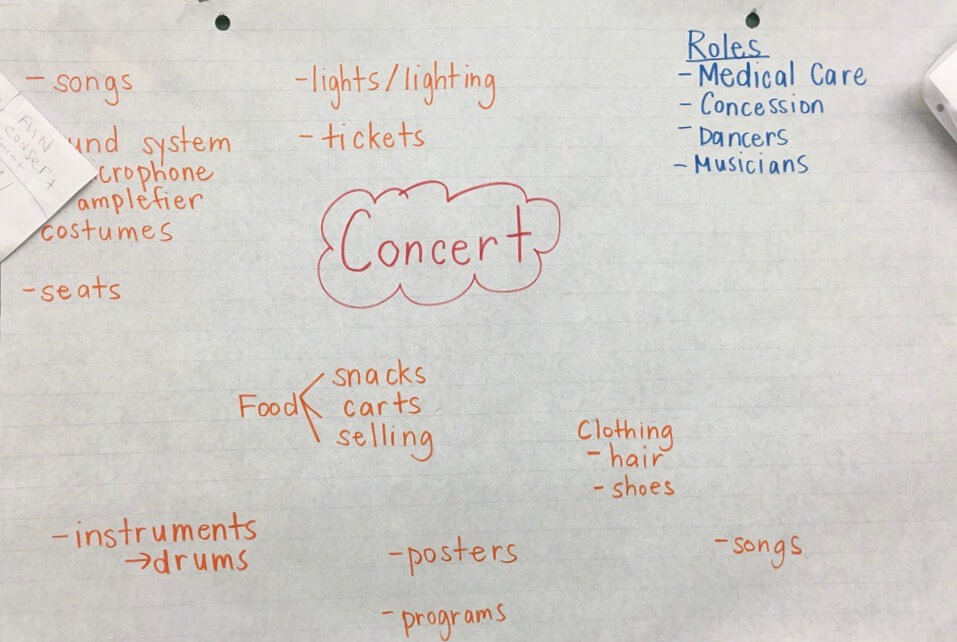 - songs
und system
crophone
amplefier
costumes
- seats
- lights/lighting
- tickets
Roles
- Medical Care
- Concession
- Dancers
- Musicians
FUN
Concert
Food
snacks
carts
selling
Clothing
- hair
- shoes
- instruments
→ drums
- posters
- programs
- songs